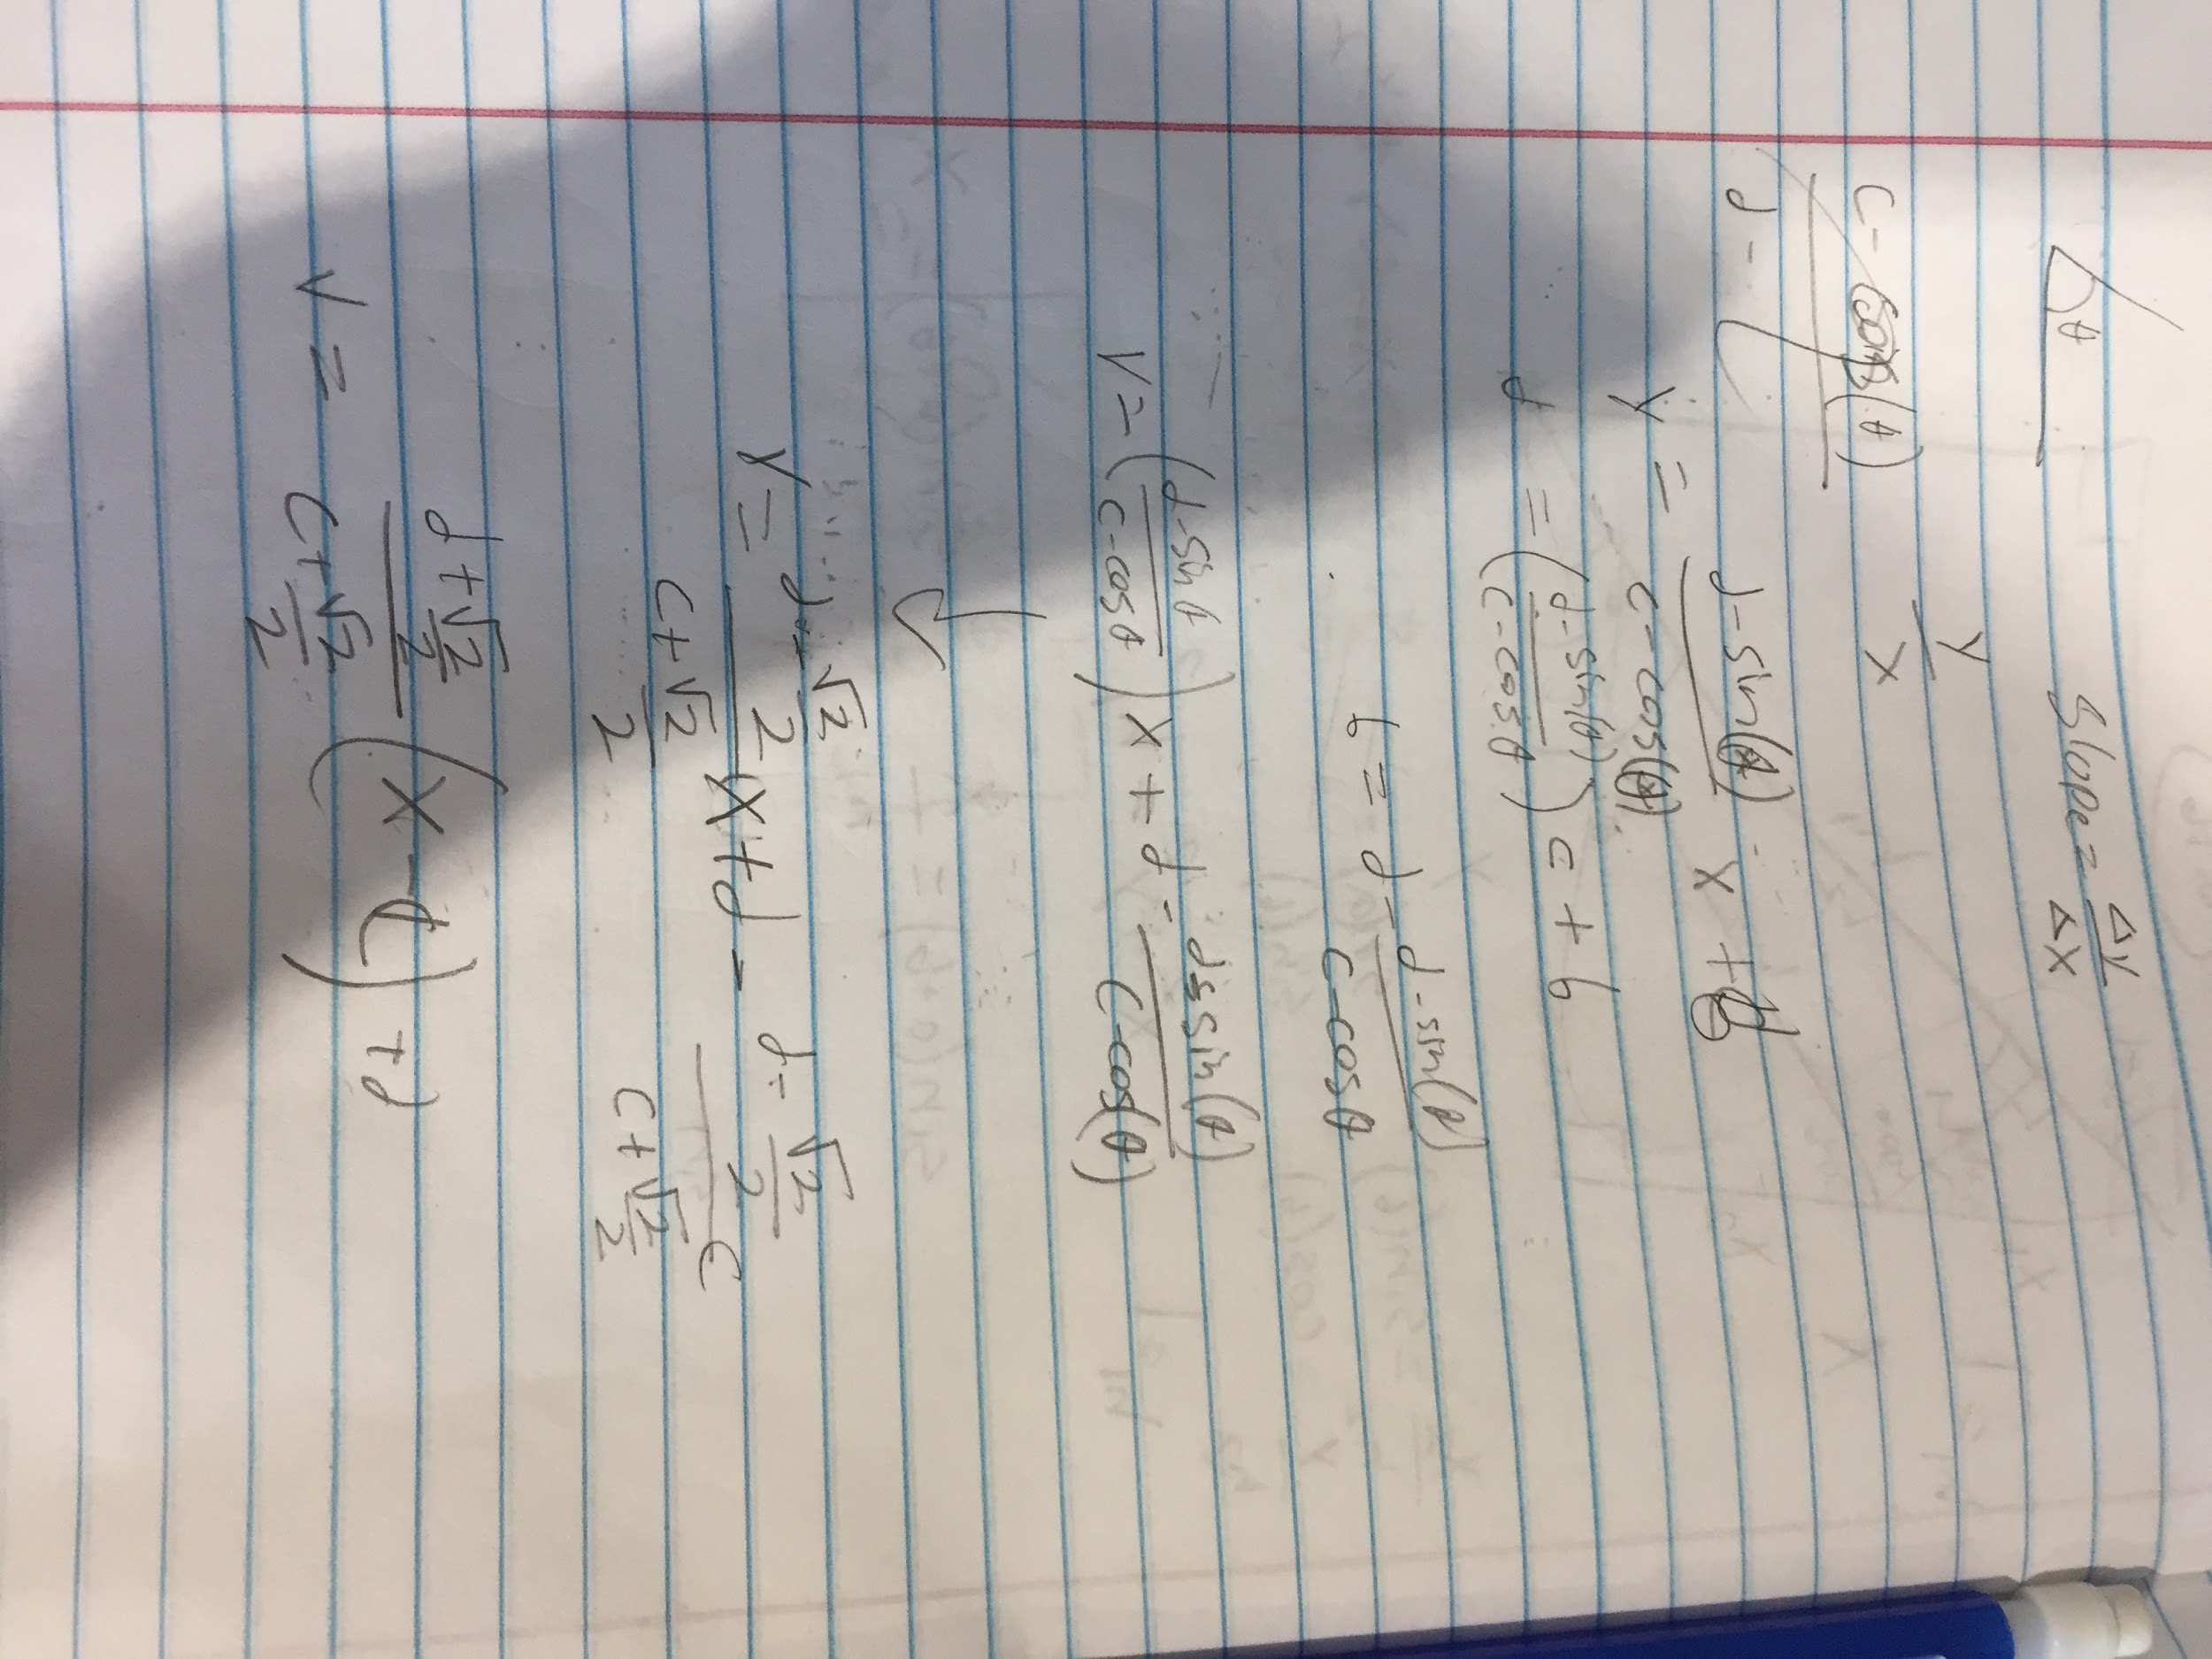 θ Slope = Δy/Δx
y/x
c - cos(θ)
d -
y = (d - sin(θ))/(c - cos(θ)) x + b
d = ((d - sin(θ))/(c - cosθ)) c + b
b = d - (d - sin(θ))/(c - cosθ)
y = ((d - sinθ)/(c - cosθ)) x + d - (d - sin(θ))/(c - cos(θ))
y = (d + √2/2)/(c + √2/2) x + d - (d + √2/2)/(c + √2/2) c
y = (d + √2/2)/(c + √2/2) (x - c) + d